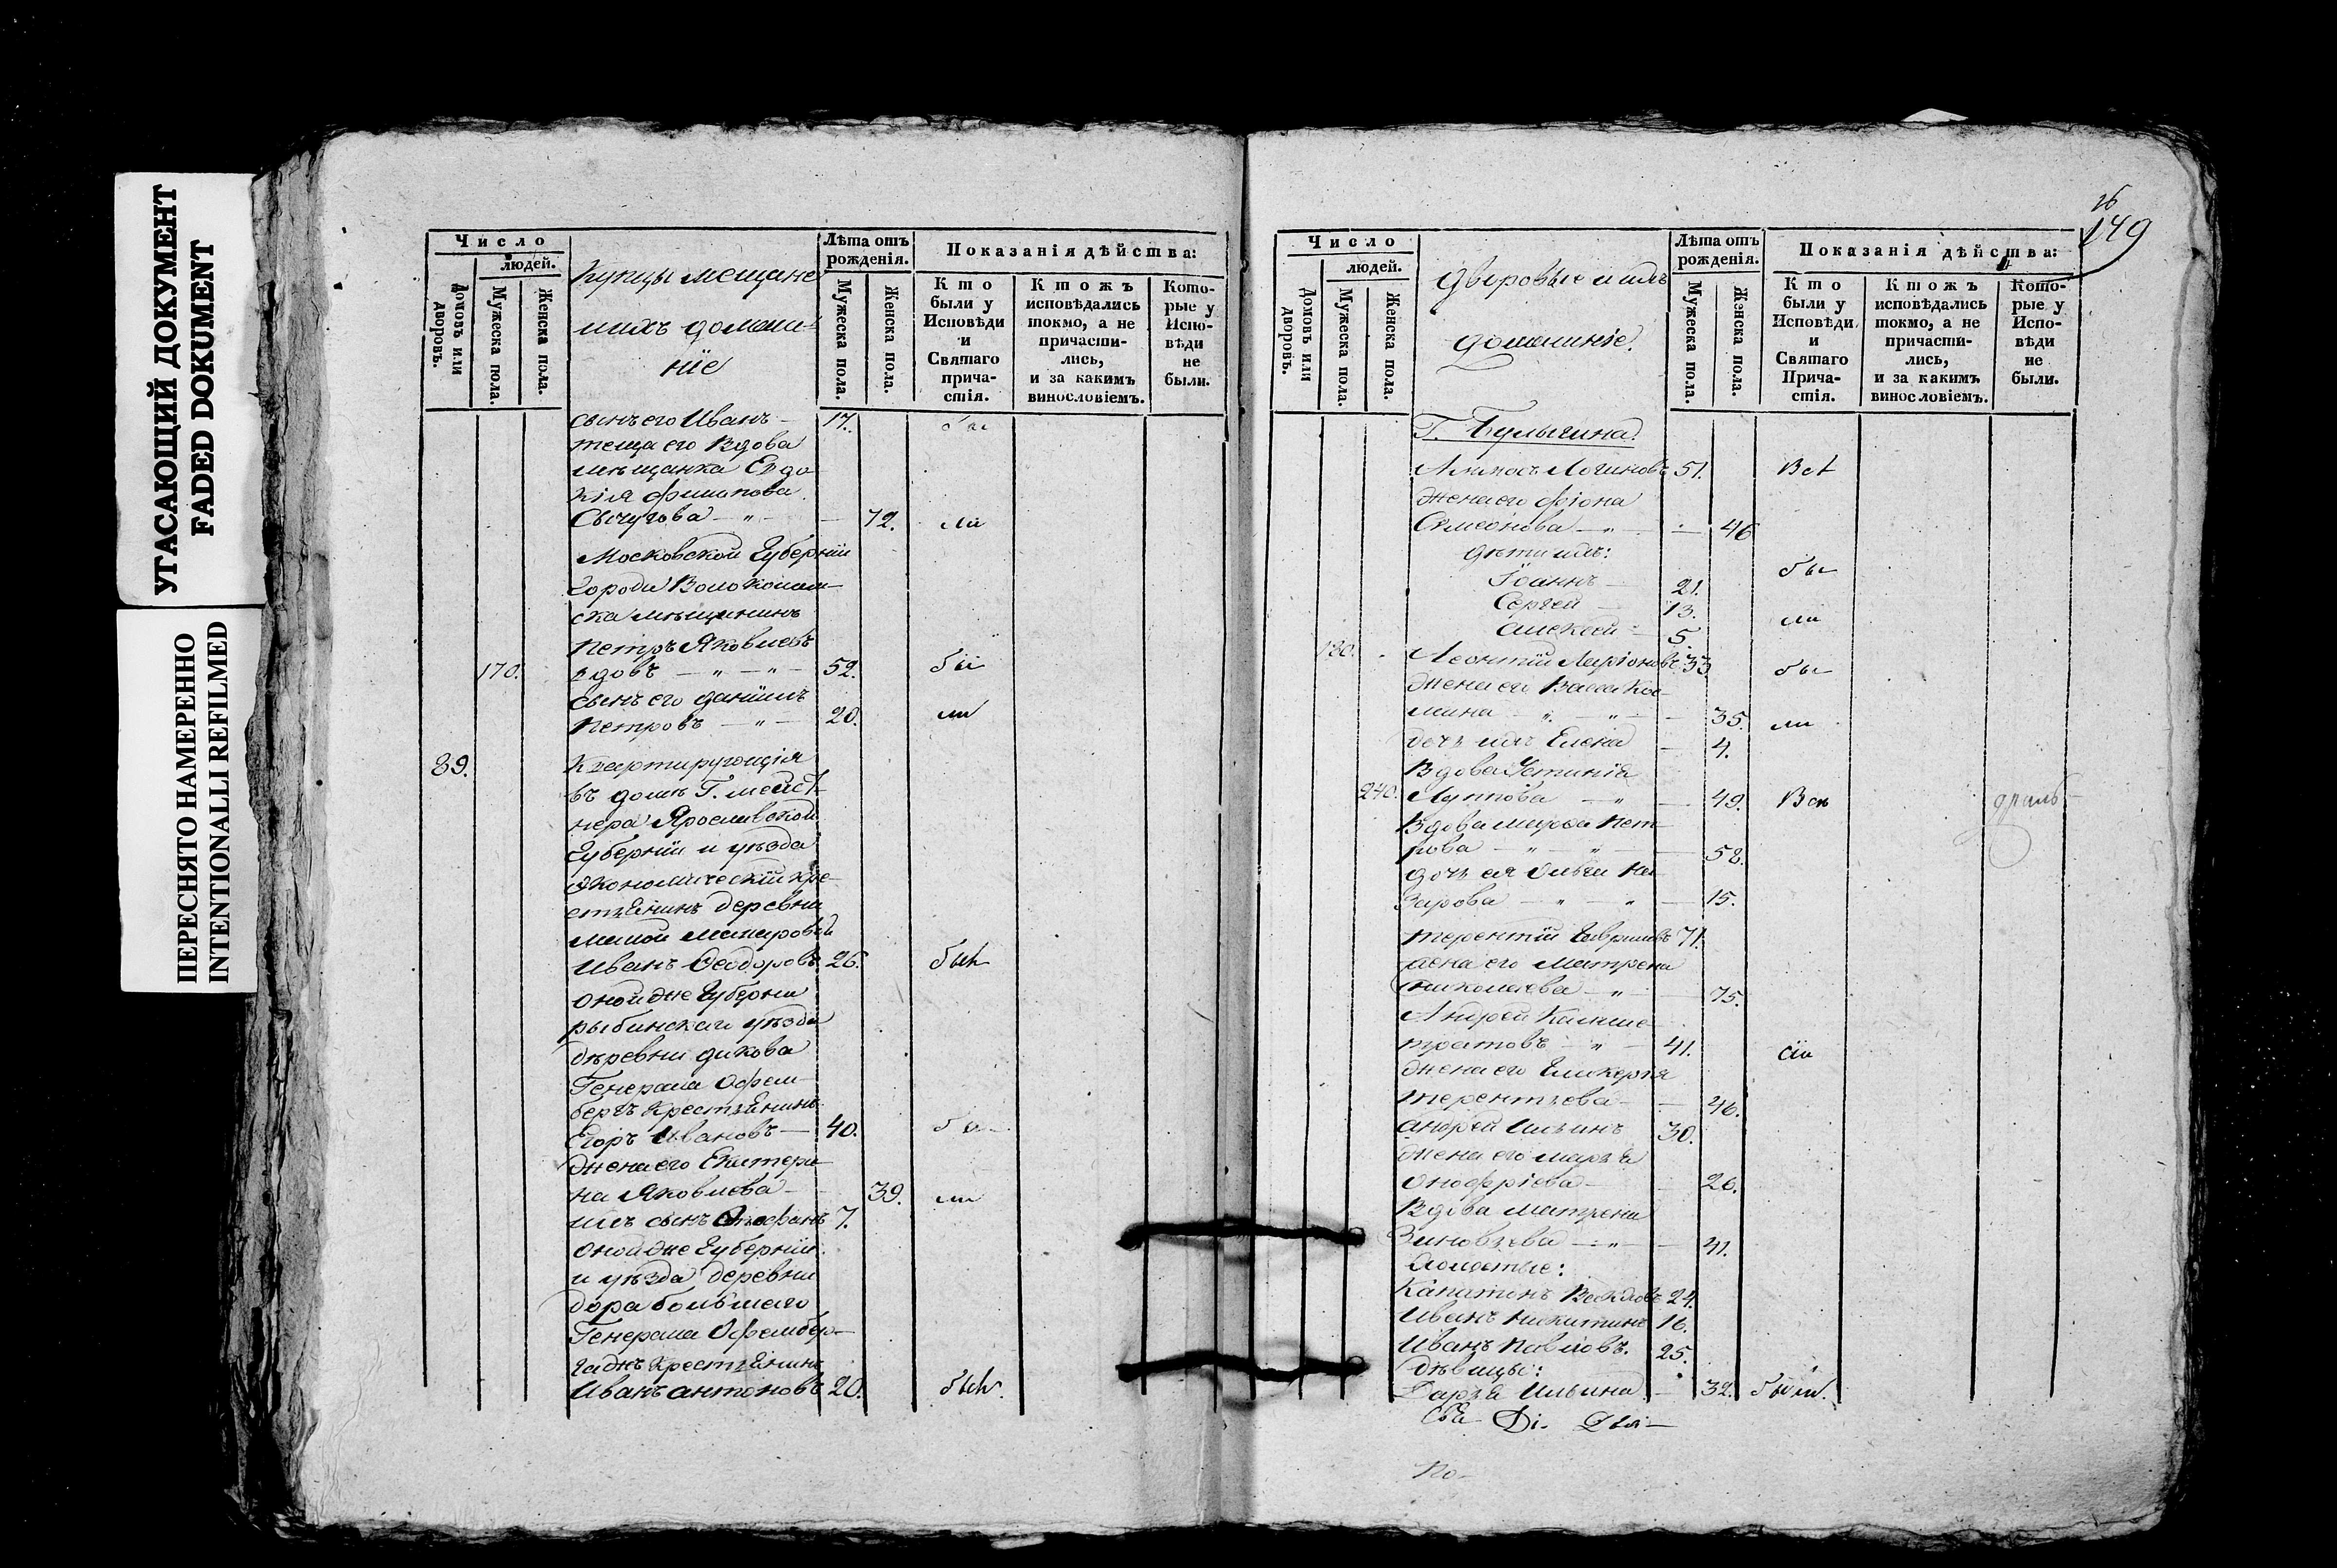 УГАСАЮЩИЙ ДОКУМЕНТ
FADED DOKUMENT
ПЕРЕСНЯТО НАМЕРЕННО
INTENTIONALLI REFILMED
Число
людей.
Домовъ или дворовъ.
Мужеска пола.
Женска пола.
купцы мещане
иихъ домаш-
ніе
Лѣта отъ рожденія.
Мужеска пола.
Женска пола.
Показанія дѣйства:
Кто были у Исповѣди и Святаго прича-стія.
Ктожъ исповѣдались токмо, а не причасти-лись, и за какимъ винословіемъ.
Кото-рые у Испо-вѣди не были.
сынъ его Иванъ — 17.
теща его Вдова
мѣщанка Евдо
кія филипова
Сычугова — " — 72. ли
Московской Губерніи
города Волоколам-
ска мѣщанинъ
Петръ Яковлевъ
170. вдовъ — " — " — 52. бы
сынъ его Даніилъ
Петровъ — " — 20. ли
89. Квартирующія
въ домѣ Г.
нера Ярославской
Губерніи и уѣзда
экономическій кре-
стьянинъ деревни
малой
Иванъ Ѳеодоровъ 26. былъ
оной же Губерни
рыбинскаго уѣзда
деревни дикова
Генерала
бергъ Крестьянинъ
Егоръ Ивановъ — 40. бы
жена его Екатери-
на Яковлева — 39. ли
ихъ сынъ 7.
оной же Губерніи
и уѣзда деревни
дора большаго
Генерала
Крестьянинъ
Иванъ антоновъ 20. былъ.
149
Число
людей.
Домовъ или дворовъ.
Мужеска пола.
Женска пола.
дворовые и ихъ
домашніе.
Лѣта отъ рожденія.
Мужеска пола.
Женска пола.
Показанія дѣйства:
Кто были у Исповѣди и Святаго Прича-стія.
Ктожъ исповѣдались токмо, а не причасти-лись, и за какимъ винословіемъ.
Кото-рые у Испо-вѣди не были.
Г. Булыгина.
Логиновъ 51. Всѣ
жена его
Симеонова — " — 46
дѣти ихъ:
Іоаннъ — 21. бы
Сергей — 13.
Алексей — 5. ли
180. Леонтій Ларіоновъ 33 бы
жена его Васса Коз-
мина — " — " — 35. ли
дочь ихъ Елена — 4.
Вдова Устинія
240. Луппова — " — 49. Всѣ
Вдова марѳа Пет-
рова — " — " — 58.
дочь ея Ольга На-
зарова — " — " — 15.
терентій Гавриловъ 71.
жена его Матрена
Николаева — " — 75.
Андрей Калис-
тратовъ — " — 41. сіи
жена его Гликерія
терентьева — 46.
андрей Ильинъ 30.
жена его марья
онофріева — 26.
Вдова Матрена
Зиновьева — " — 41.
холостые:
Капитонъ 24.
Иванъ Никитинъ 16.
Иванъ Павловъ. 25.
дѣвицы:
Дарья Ильина — 32. были.